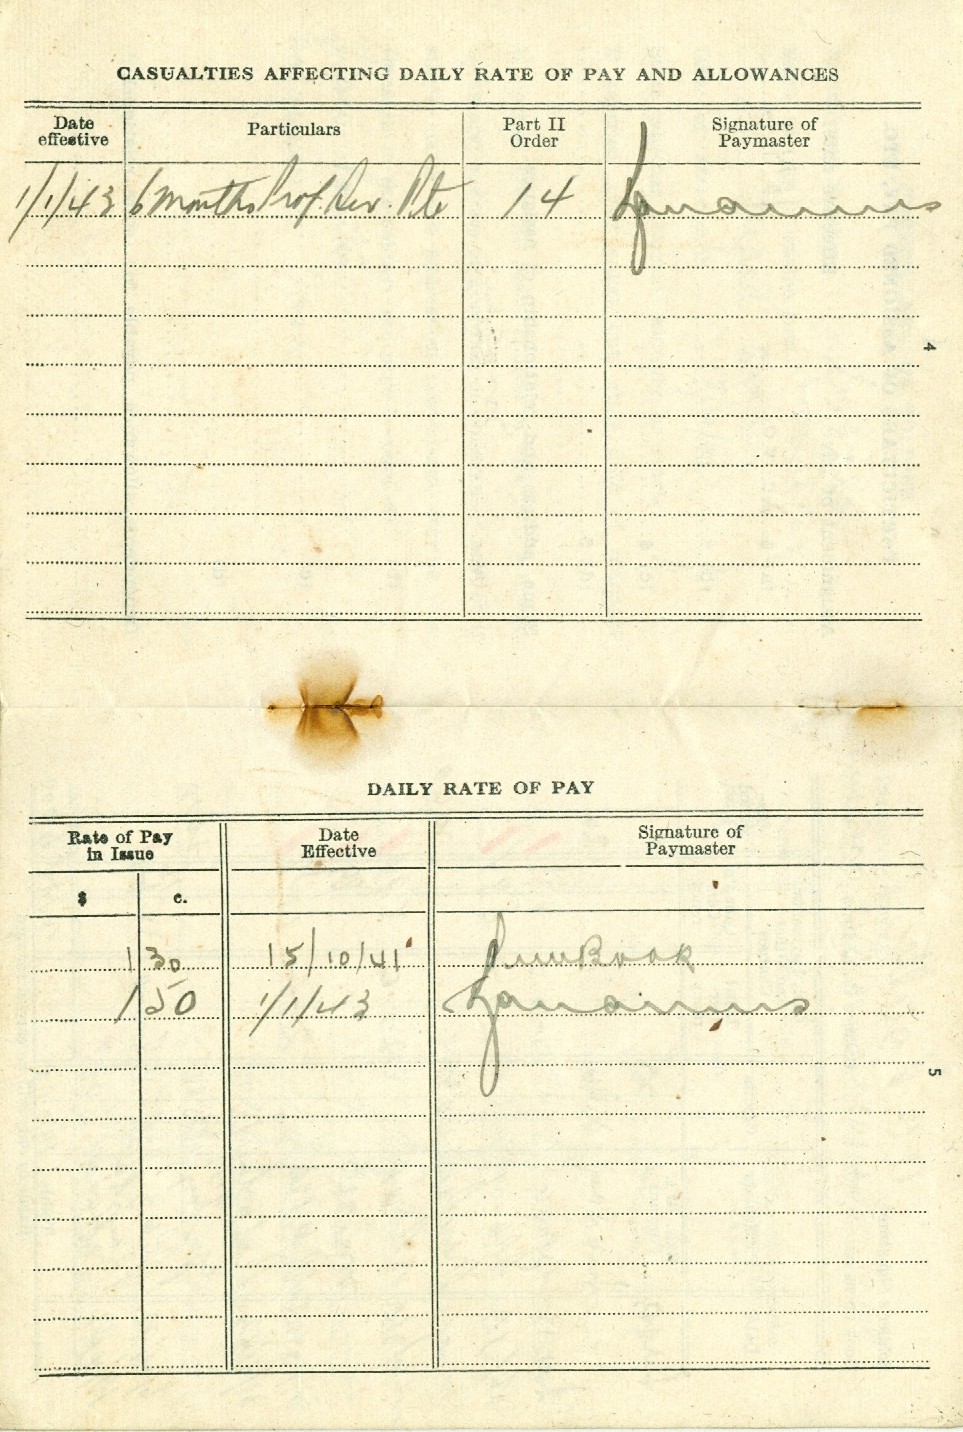 CASUALTIES AFFECTING DAILY RATE OF PAY AND ALLOWANCES
Date effective Particulars Part II Order Signature of Paymaster
1/1/43 6 months Prof. Rev. Pte 14
4
DAILY RATE OF PAY
Rate of Pay in Issue Date Effective Signature of Paymaster
$ c.
1 30 15/10/41
1 50 1/1/43
5